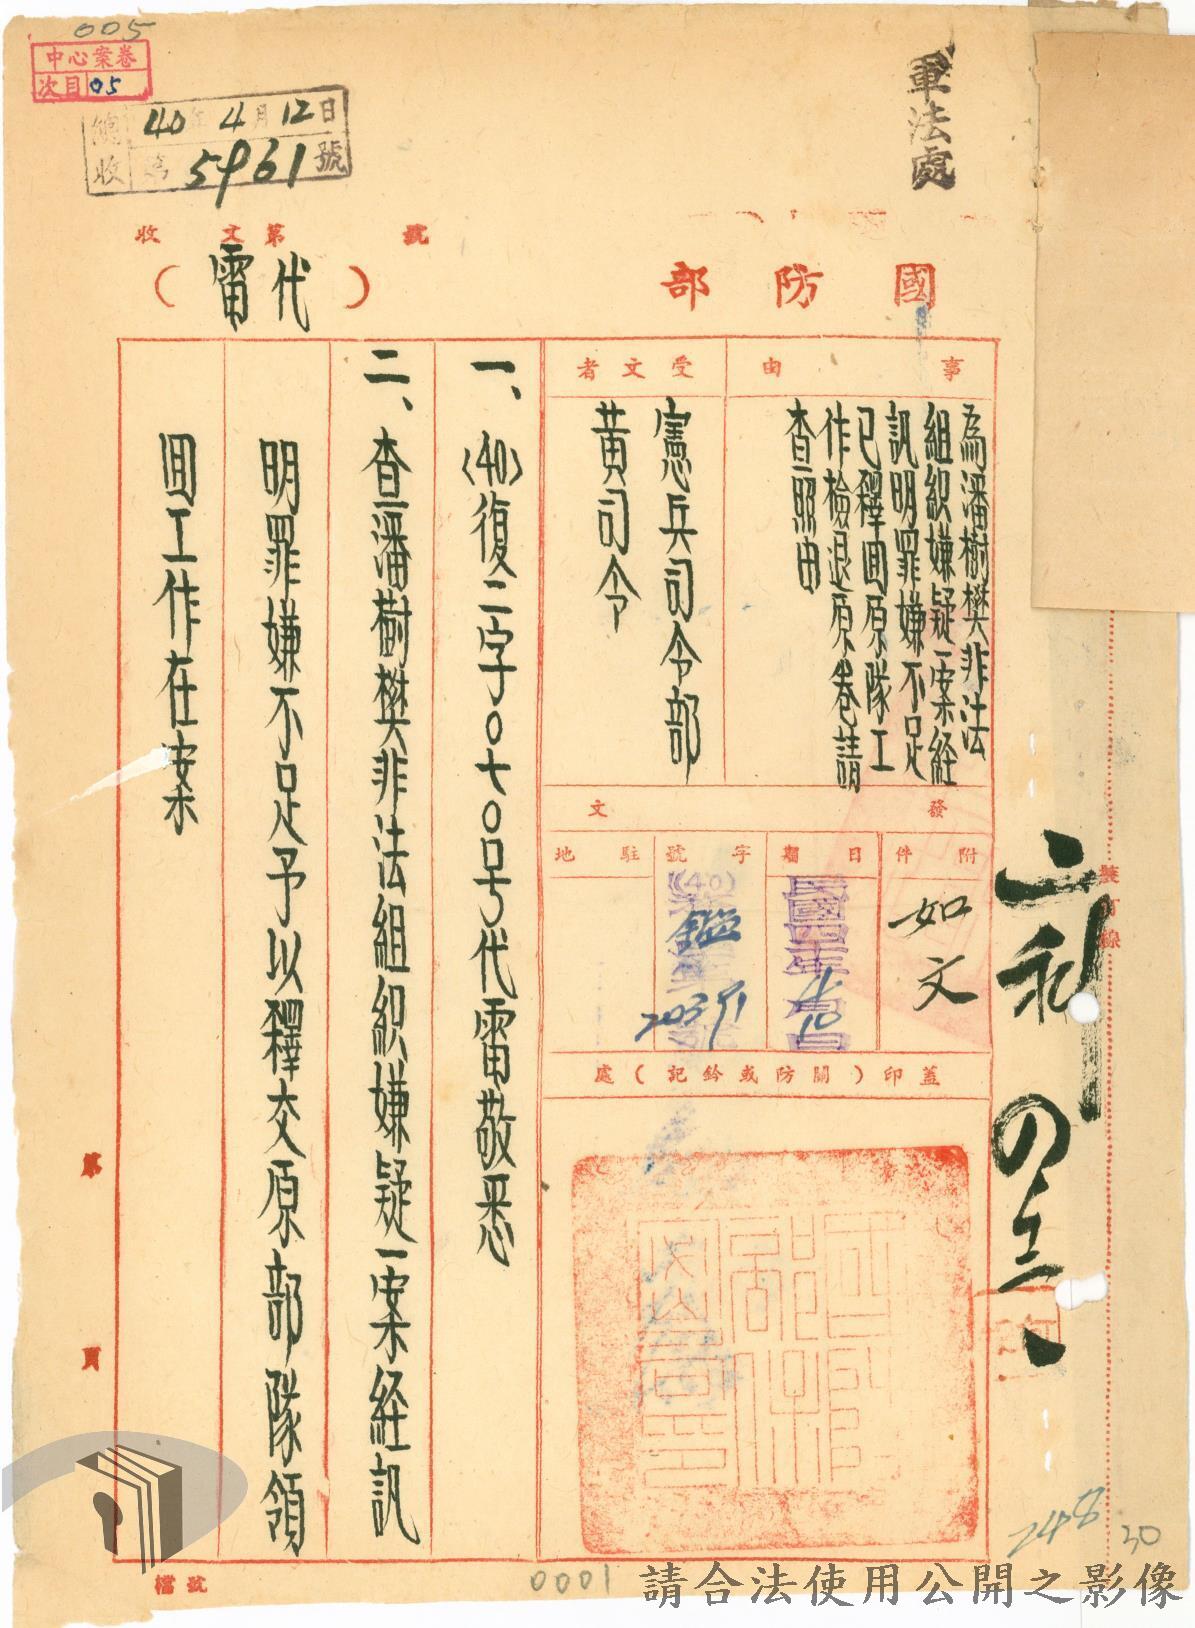 005
中心案卷
次目 05
總收 40年4月12日
第5961號
軍法處
收文第 號
國防部
(代電)
事由
為潘樹樊非法
組織嫌疑一案経
訊明罪嫌不足
已釋囬原隊工
作檢退原卷請
查照由
受文者
憲兵司令部
黃司令
發文
附件
如文
日期
民國四十年 月 日
4/10
字號
(40)
駐地
蓋印(關防或鈐記)處
一、(40)復二字0七0号代電敬悉
二、查潘樹樊非法組織嫌疑一案経訊
明罪嫌不足予以釋交原部隊領
囬工作在案
裝訂線
第 頁
檔號
0001
248
30
請合法使用公開之影像